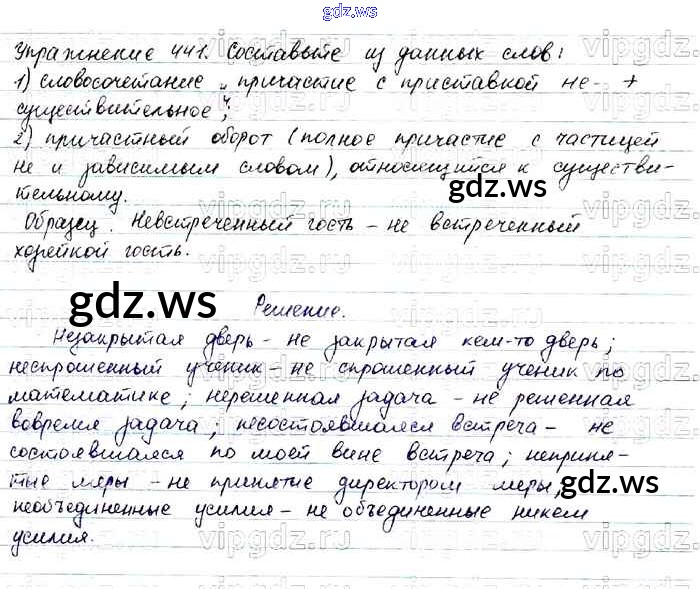 gdz.ws
Упражнение 441. Составьте из данных слов:
1) словосочетание „причастие с приставкой не- +
существительное“;
2) причастный оборот (полное причастие с частицей
не и зависимым словом), относящийся к существи-
тельному.
gdz.ws
Образец. Невстреченный гость – не встреченный
хозяйкой гость.
gdz.ws
Решение.
Незакрытая дверь – не закрытая кем-то дверь;
неспрошенный ученик – не спрошенный ученик по
математике; нерешенная задача – не решенная
вовремя задача; несостоявшаяся встреча – не
состоявшаяся по моей вине встреча; неприня-
тые меры – не принятые директором меры;
необъединенные усилия – не объединенные никем
усилия.
gdz.ws
vipgdz.ws